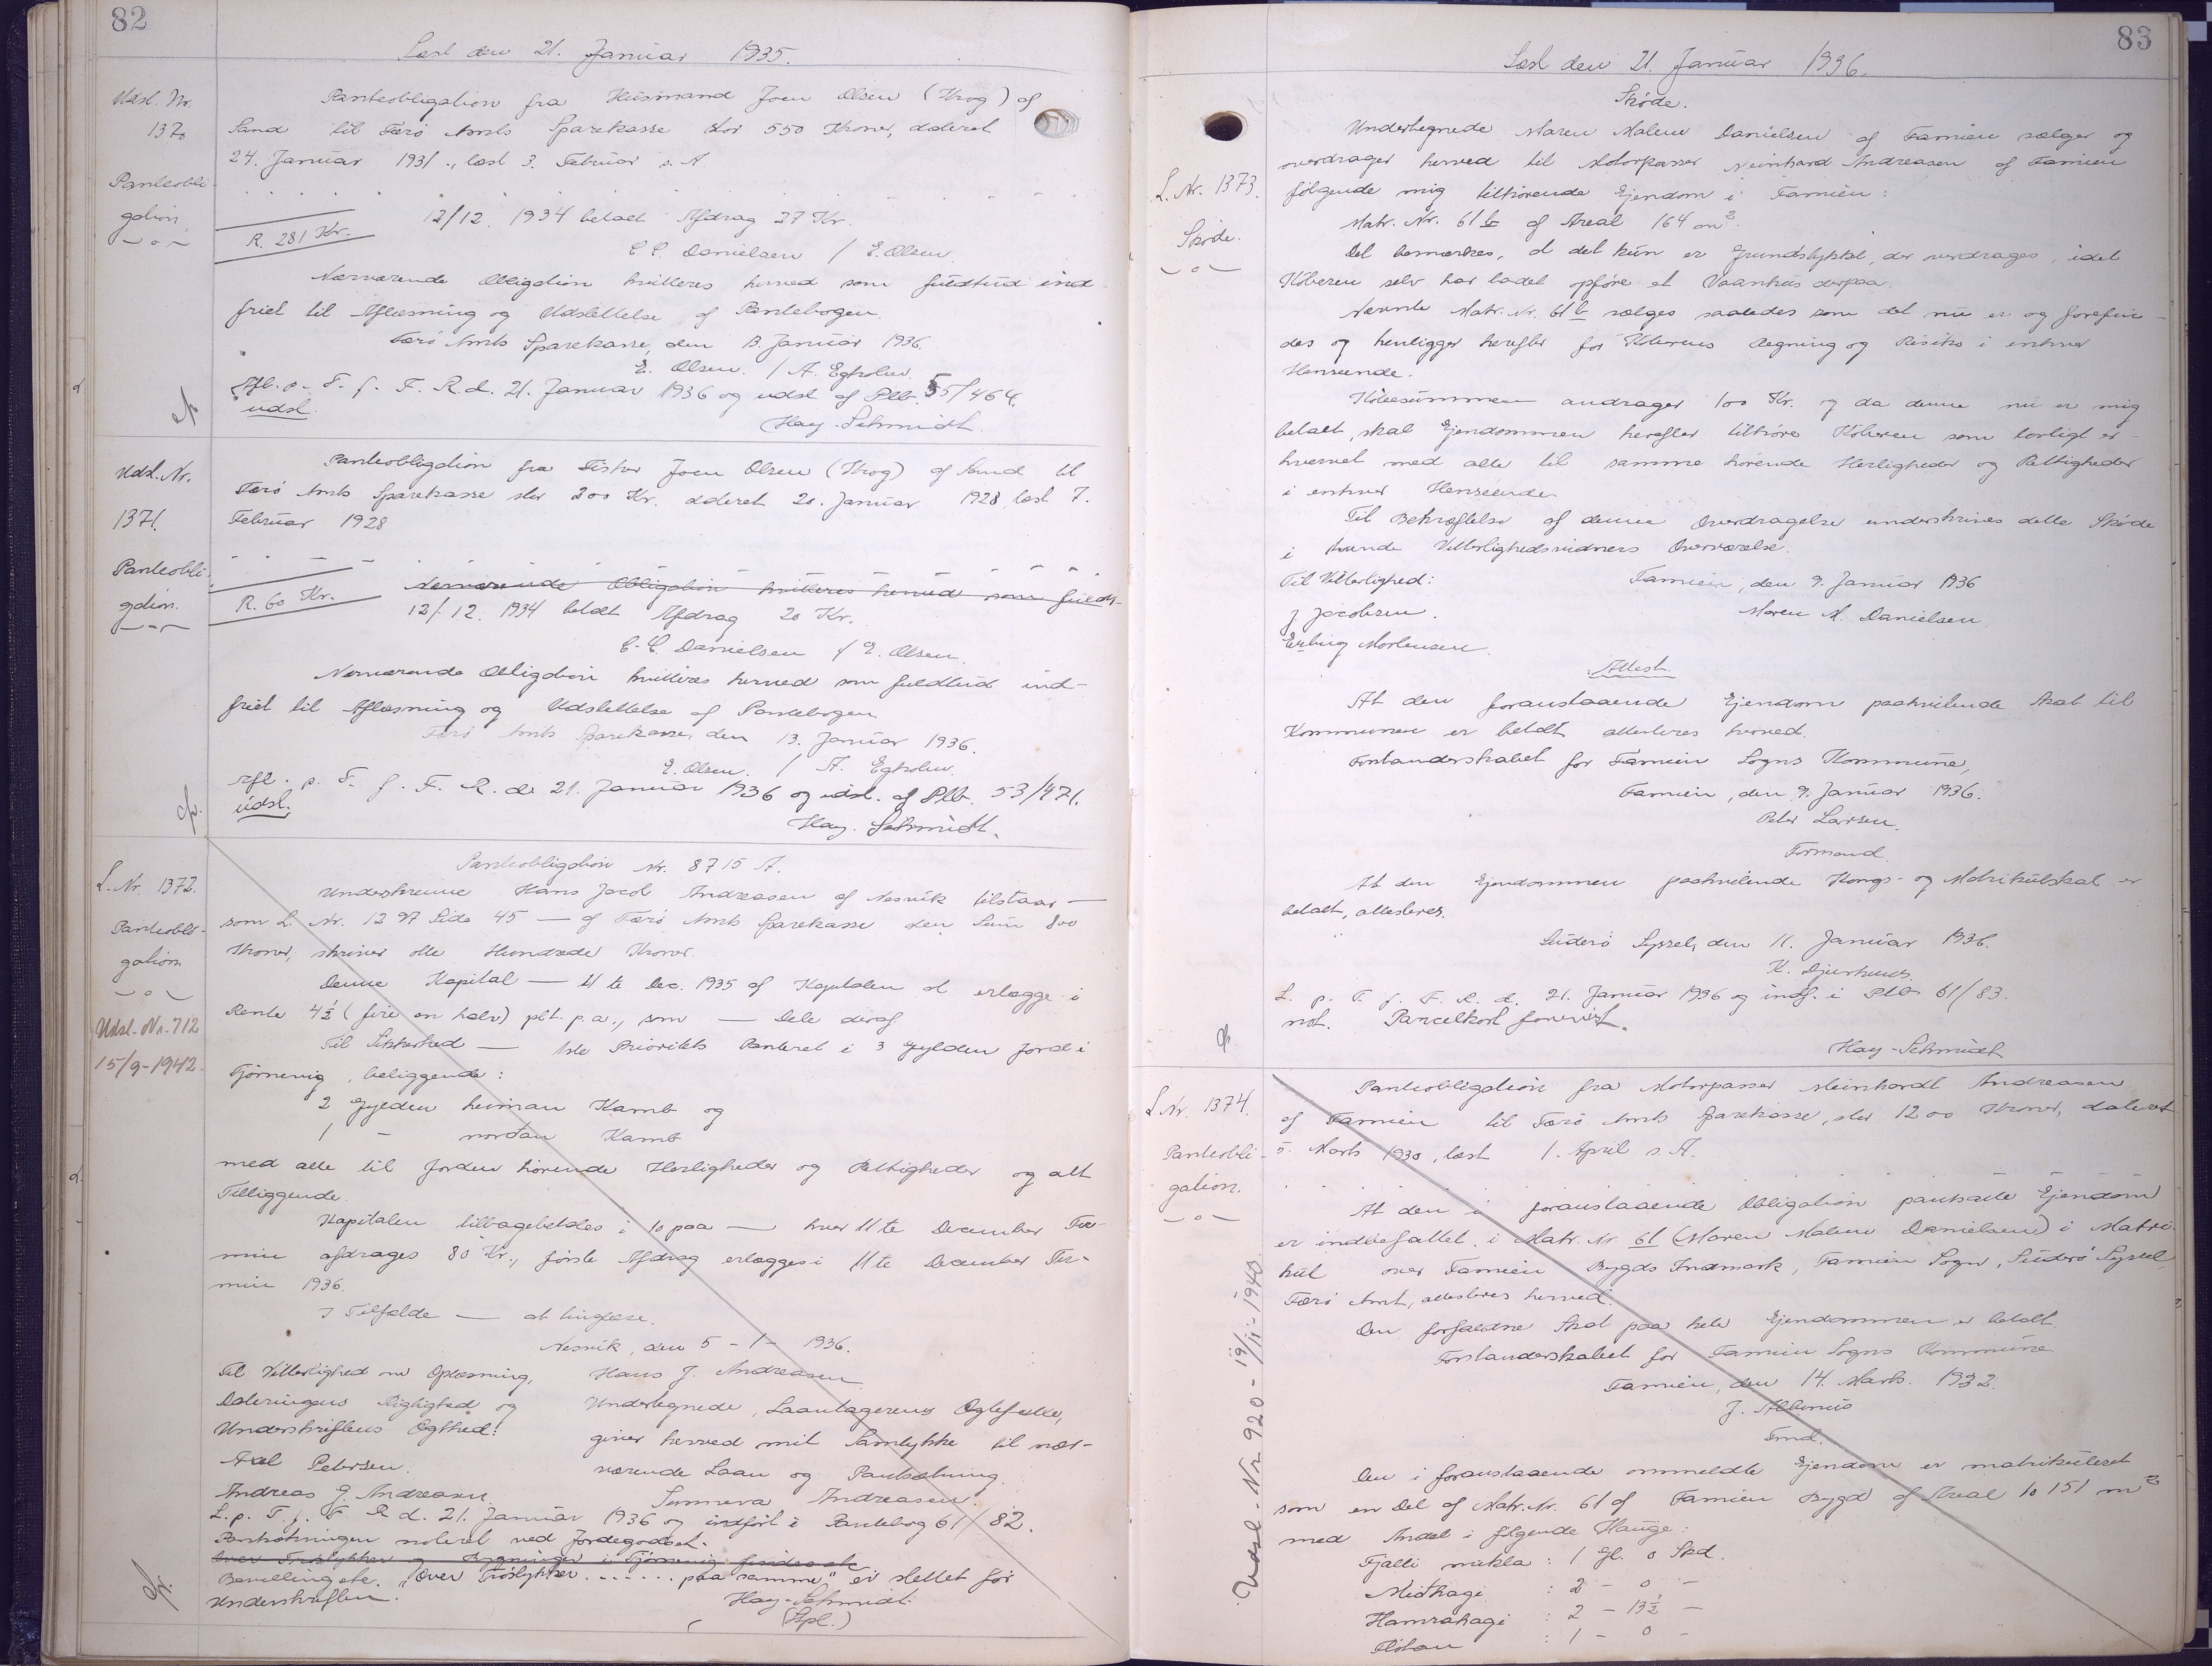 82
Læst den 21. Januar 1935.
Udsl. Nr.
1370
Panteobli-
gation
Panteobligation fra Husmand Joen Olsen (Krog) af
Sand til Færö Amts Sparekasse stor 550 Kroner, dateret
24. Januar 1931., læst 3. Februar s. A.
R. 281 Kr.
12/12. 1934 betalt Afdrag 27 Kr.
C. C. Danielsen / E. Olsen
Nærværende Obligation kvitteres herved som fuldtud ind-
friet til Aflæsning og Udslettelse af Pantebogen.
Færö Amts Sparekasse, den 13. Januar 1936.
E. Olsen. / A. Egholm.
Afl. p. T. f. F. R. d. 21. Januar 1936 og udsl. af Plb. 55/464.
udsl.
Hay-Schmidt.
Udsl. Nr.
1371.
Panteobli-
gation.
Panteobligation fra Fisker Joen Olsen (Krog) af Sand til
Færö Amts Sparekasse stor 200 Kr. dateret 20. Januar 1928, læst 7.
Februar 1928
R. 60 Kr.
Nærværende Obligation kvitteres herved som fuldt-
12/12. 1934 betalt Afdrag 20 Kr.
C. C. Danielsen / E. Olsen.
Nærværende Obligation kvitteres herved som fuldtud ind-
friet til Aflæsning og Udslettelse af Pantebogen
Færö Amts Sparekasse, den 13. Januar 1936.
E. Olsen. / A. Egholm.
Afl. p. T. f. F. R. d. 21. Januar 1936 og udsl. af Plb. 53/471.
udsl.
Hay-Schmidt.
L. Nr. 1372.
Panteobli-
gation
Udsl. Nr. 712
15/9-1942.
Panteobligation Nr. 8715 A.
Underskrevne Hans Jacob Andreasen af Nesvik tilstaar —
som L. Nr. 1297 Side 45 — af Færö Amts Sparekasse den Sum 800
Kroner, skriver otte Hundrede Kroner.
Denne Kapital — 11te Dec. 1935 af Kapitalen at erlægge i
Rente 4½ (fire en halv) pct. p.a., som — Dele deraf
Til Sikkerhed — 1ste Prioritets Panteret i 3 Gylden Jord i
Tjörnevig, beliggende:
2 Gylden heiman Kamb og
1 - nordan Kamb
med alle til Jorden hörende Herligheder og Rettigheder og alt
Tilliggende.
Kapitalen tilbagebetales i 10 paa — hver 11te December Ter-
min afdrages 80 Kr., förste Afdrag erlægges i 11te December Ter-
min 1936.
I Tilfælde — at tinglæse.
Nesvik, den 5-1-1936.
Til Vitterlighed om Oplæsning,
Hans J. Andreasen
Dateringens Rigtighed og
Undertegnede, Laantagerens Ægtefælle,
Underskriftens Ægthed:
giver herved mit Samtykke til nær-
Axel Petersen.
værende Laan og Pantsætning.
Andreas J. Andreasen.
Sunneva Andreasen.
L. p. T. f. F. R. d. 21. Januar 1936 og indfört i Pantebog 61/82.
Pantsætningen noteret ved Jordegodset.
Over Tröstykker og Bygninger i Tjörnevig findes ete
Bemelingete. "Over Tröstykker ...... paa samme" er slettet för
Underskriften.
Hay-Schmidt.
(Spl.)
83
Læst den 21. Januar 1936.
L. Nr. 1373.
Sköde.
Sköde.
Undertegnede Maren Malene Danielsen af Famien sælger og
overdrager herved til Motorpasser Meinhard Andreasen af Famien
fölgende mig tilhörende Ejendom i Famien:
Matr. Nr. 61 b af Areal 164 m².
Det bemærkes, at det kun er Grundstykket, der overdrages, idet
Köberen selv har ladet opföre et Vaanhus derpaa.
Nævnte Matr. Nr. 61 b sælges saaledes som det nu er og forefin-
des og henligger herefter for Köberens Regning og Risiko i enhver
Henseende.
Köbesummen andrager 100 Kr. og da denne nu er mig
betalt, skal Ejendommen herefter tilhöre Köberen som lovligt er-
hvervet med alle til samme hörende Herligheder og Rettigheder
i enhver Henseende.
Til Bekræftelse af denne Overdragelse underskrives dette Sköde
i tvende Vitterlighedsvidners Overværelse.
Til Vitterlighed:
Famien, den 9. Januar 1936
J. Jacobsen.
Maren M. Danielsen.
Erling Mortensen.
Attest.
At den foranstaaende Ejendom paahvilende Skat til
Kommunen er betalt attesteres herved.
Forstanderskabet for Famien Sogns Kommune,
Famien, den 9. Januar 1936.
Peter Larsen.
Formand.
At den Ejendommen paahvilende Kongs- og Matrikulskat er
betalt, attesteres.
Suderö Syssel, den 11. Januar 1936.
K. Djurhuus.
L. p. T. f. F. R. d. 21. Januar 1936 og indf. i Plb 61/83.
not. Parcelkort forevist.
Hay-Schmidt
L. Nr. 1374.
Panteobli-
gation.
Udsl. Nr. 920 - 19/11-1940.
Panteobligation fra Motorpasser Meinhardt Andreasen
af Famien til Færö Amts Sparekasse, stor 1200 Kroner, dateret
5. Marts 1930, læst 1. April s. A.
At den i foranstaaende Obligation pantsatte Ejendom
er indbefattet i Matr. Nr. 61 (Maren Malene Danielsen) i Matri-
kul over Famien Bygds Indmark, Famien Sogn, Suderö Syssel,
Færö Amt, attesteres herved.
Den forfaldne Skat paa hele Ejendommen er betalt.
Forstanderskabet for Famien Sogns Kommune
Famien, den 14. Marts. 1932.
J. Albinus
Fmd.
Den i foranstaaende ommeldte Ejendom er matrikuleret
som en Del af Matr. Nr. 61 af Famien Bygd af Areal 10151 m²
med Andel i fölgende Hauge:
Fjalli mikla : 1 Gl. 0 Skd.
Midhagi : 2 - 0 -
Hamrahagi : 2 - 13½ -
: 1 - 0 -